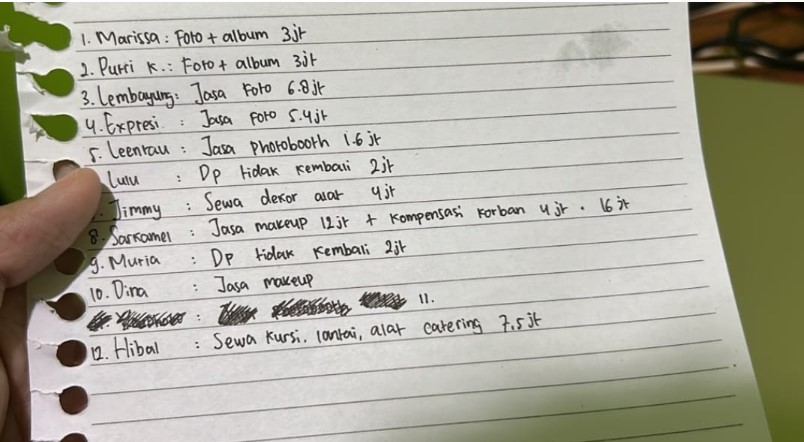 1. Marissa : Foto + album 3jt
2. Putri K. : Foto + album 3jt
3. Lembayung : Jasa Foto 6.8jt
4. Expresi : Jasa Foto 5.4jt
5. Leentau : Jasa photobooth 1.6 jt
Lulu : Dp tidak kembali 2jt
Jimmy : Sewa dekor alat 4jt
8. Sarkamel : Jasa makeup 12jt + kompensasi korban 4jt . 16 jt
9. Muria : Dp tidak kembali 2jt
10. Dina : Jasa makeup
: 11.
12. Hibal : Sewa kursi. lantai, alat catering 7.5jt